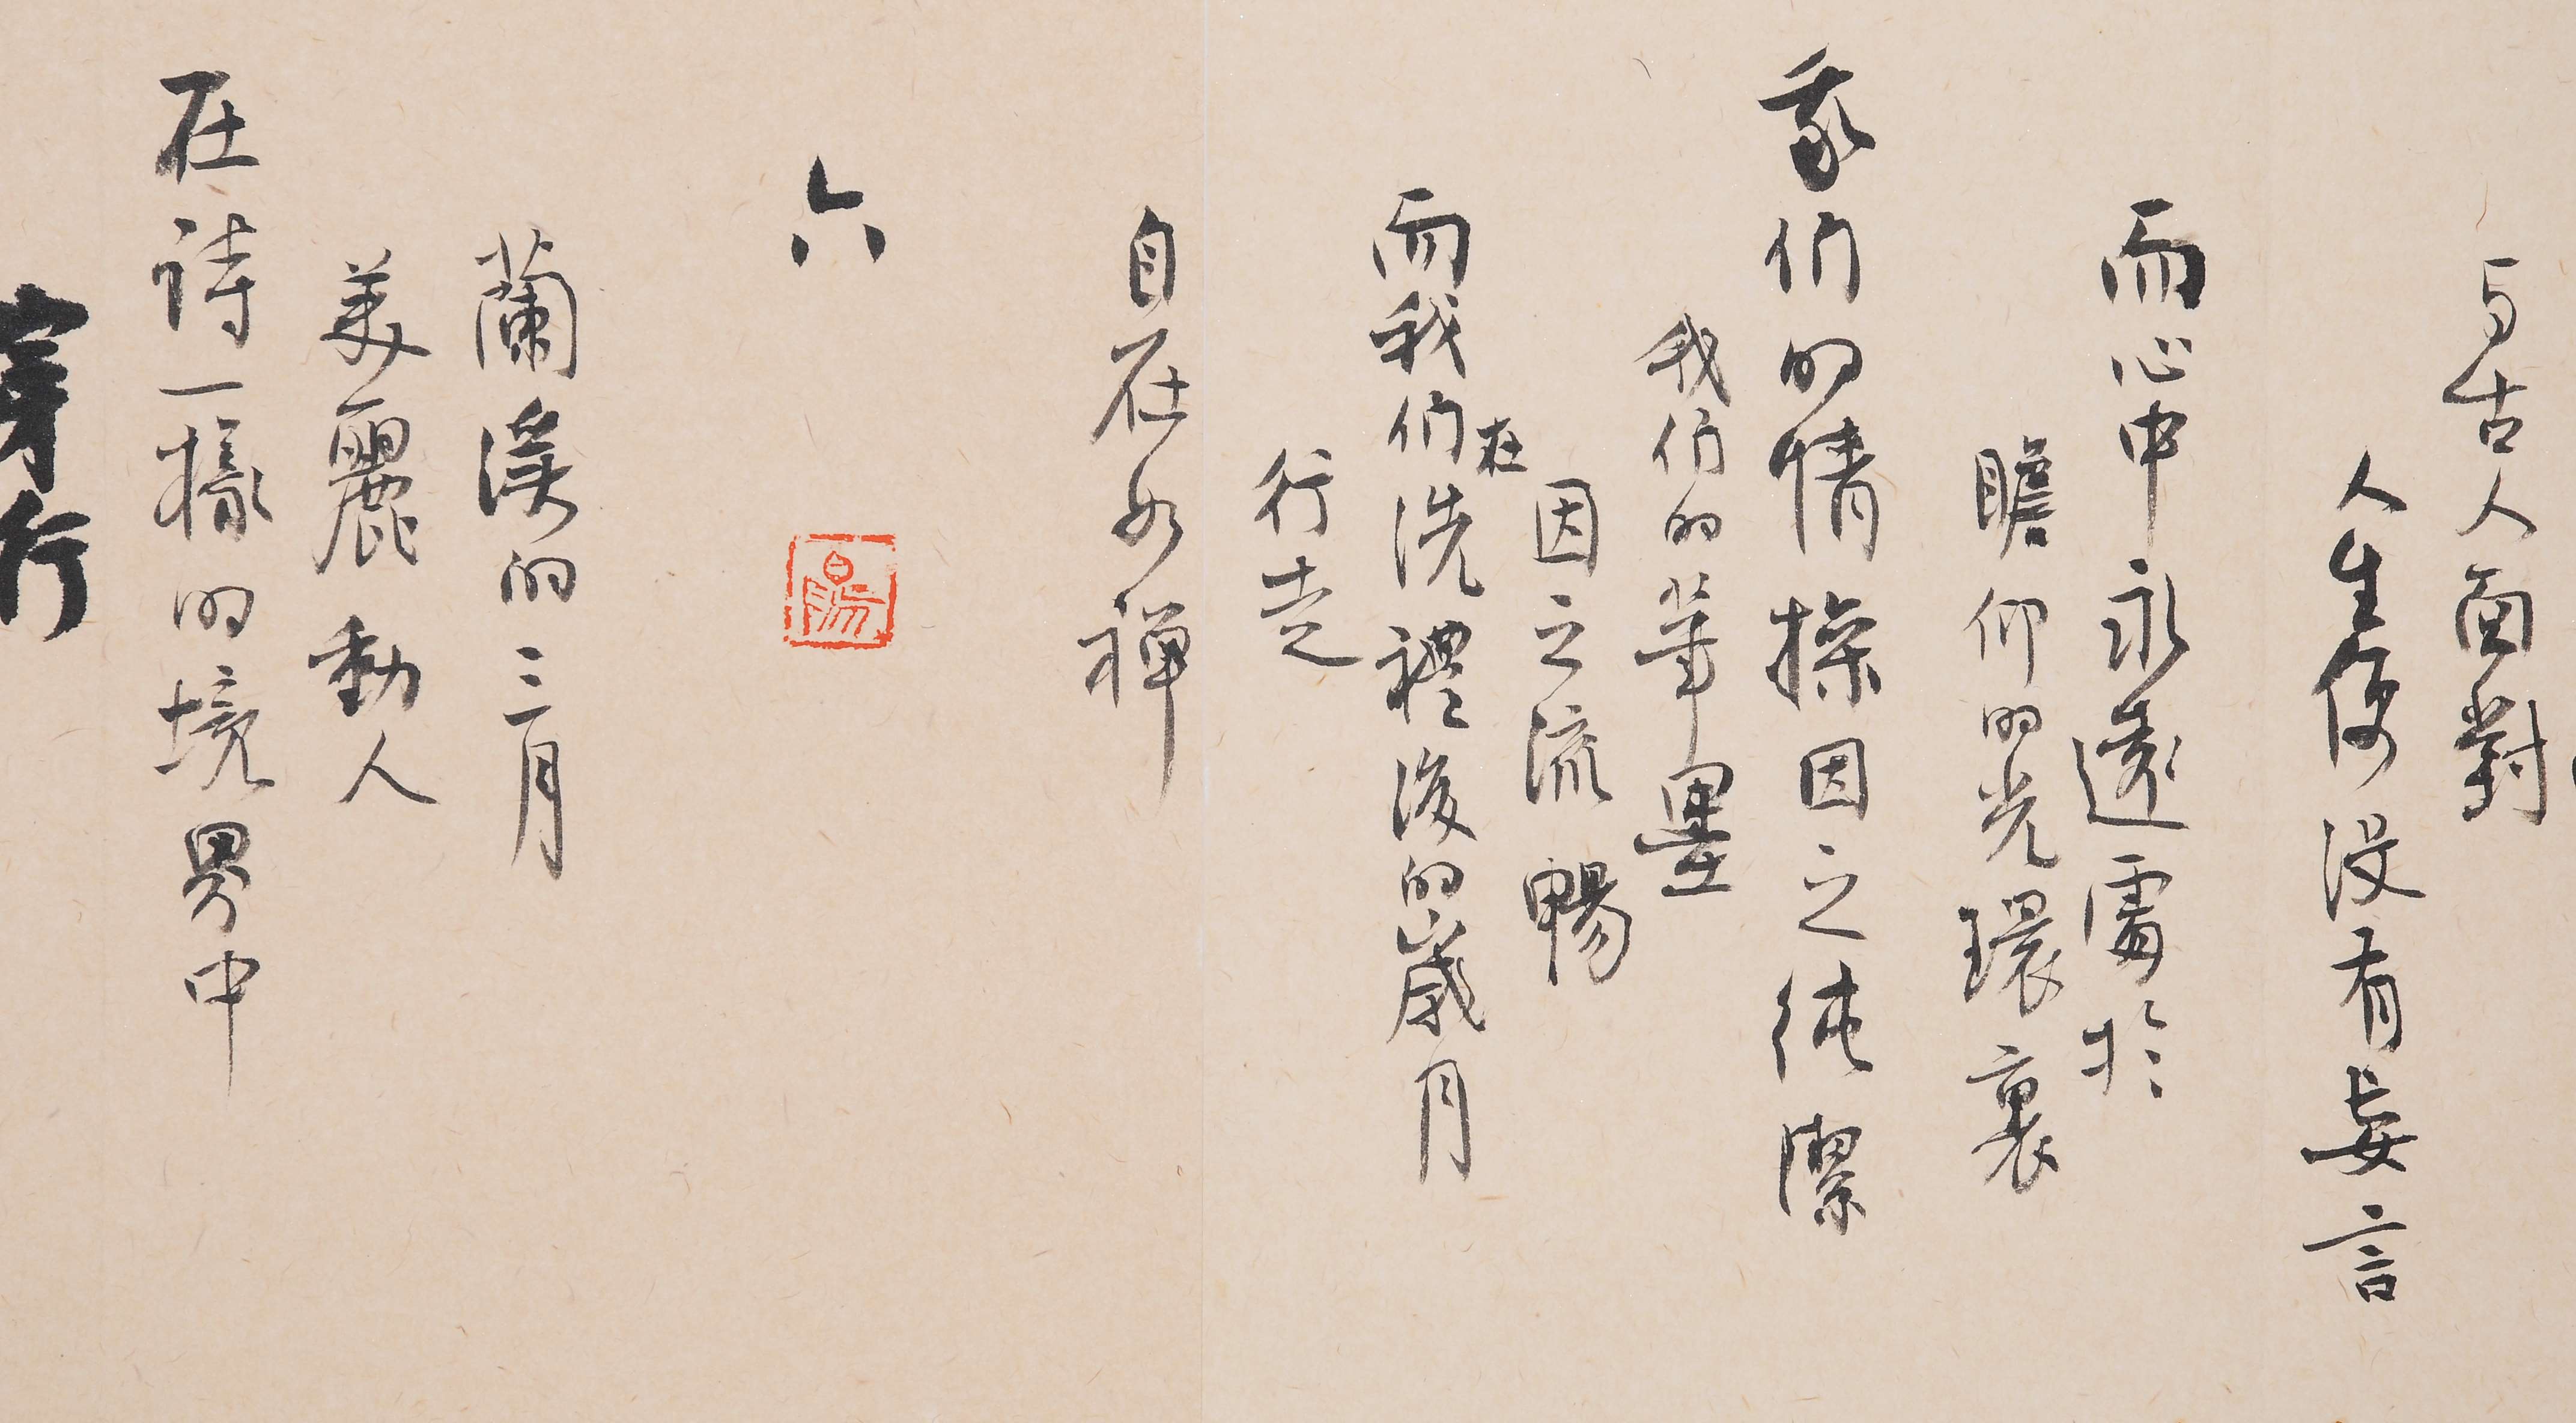 与古人面對
人生便没有妄言
而心中永遠需於
瞻仰的光環裏
我们的情操因之纯潔
我们的筆墨
因之流暢
而我们在洗禮後的歲月
行走
自在如禅
六
蘭溪的三月
美麗動人
在詩一樣的境界中
穿行